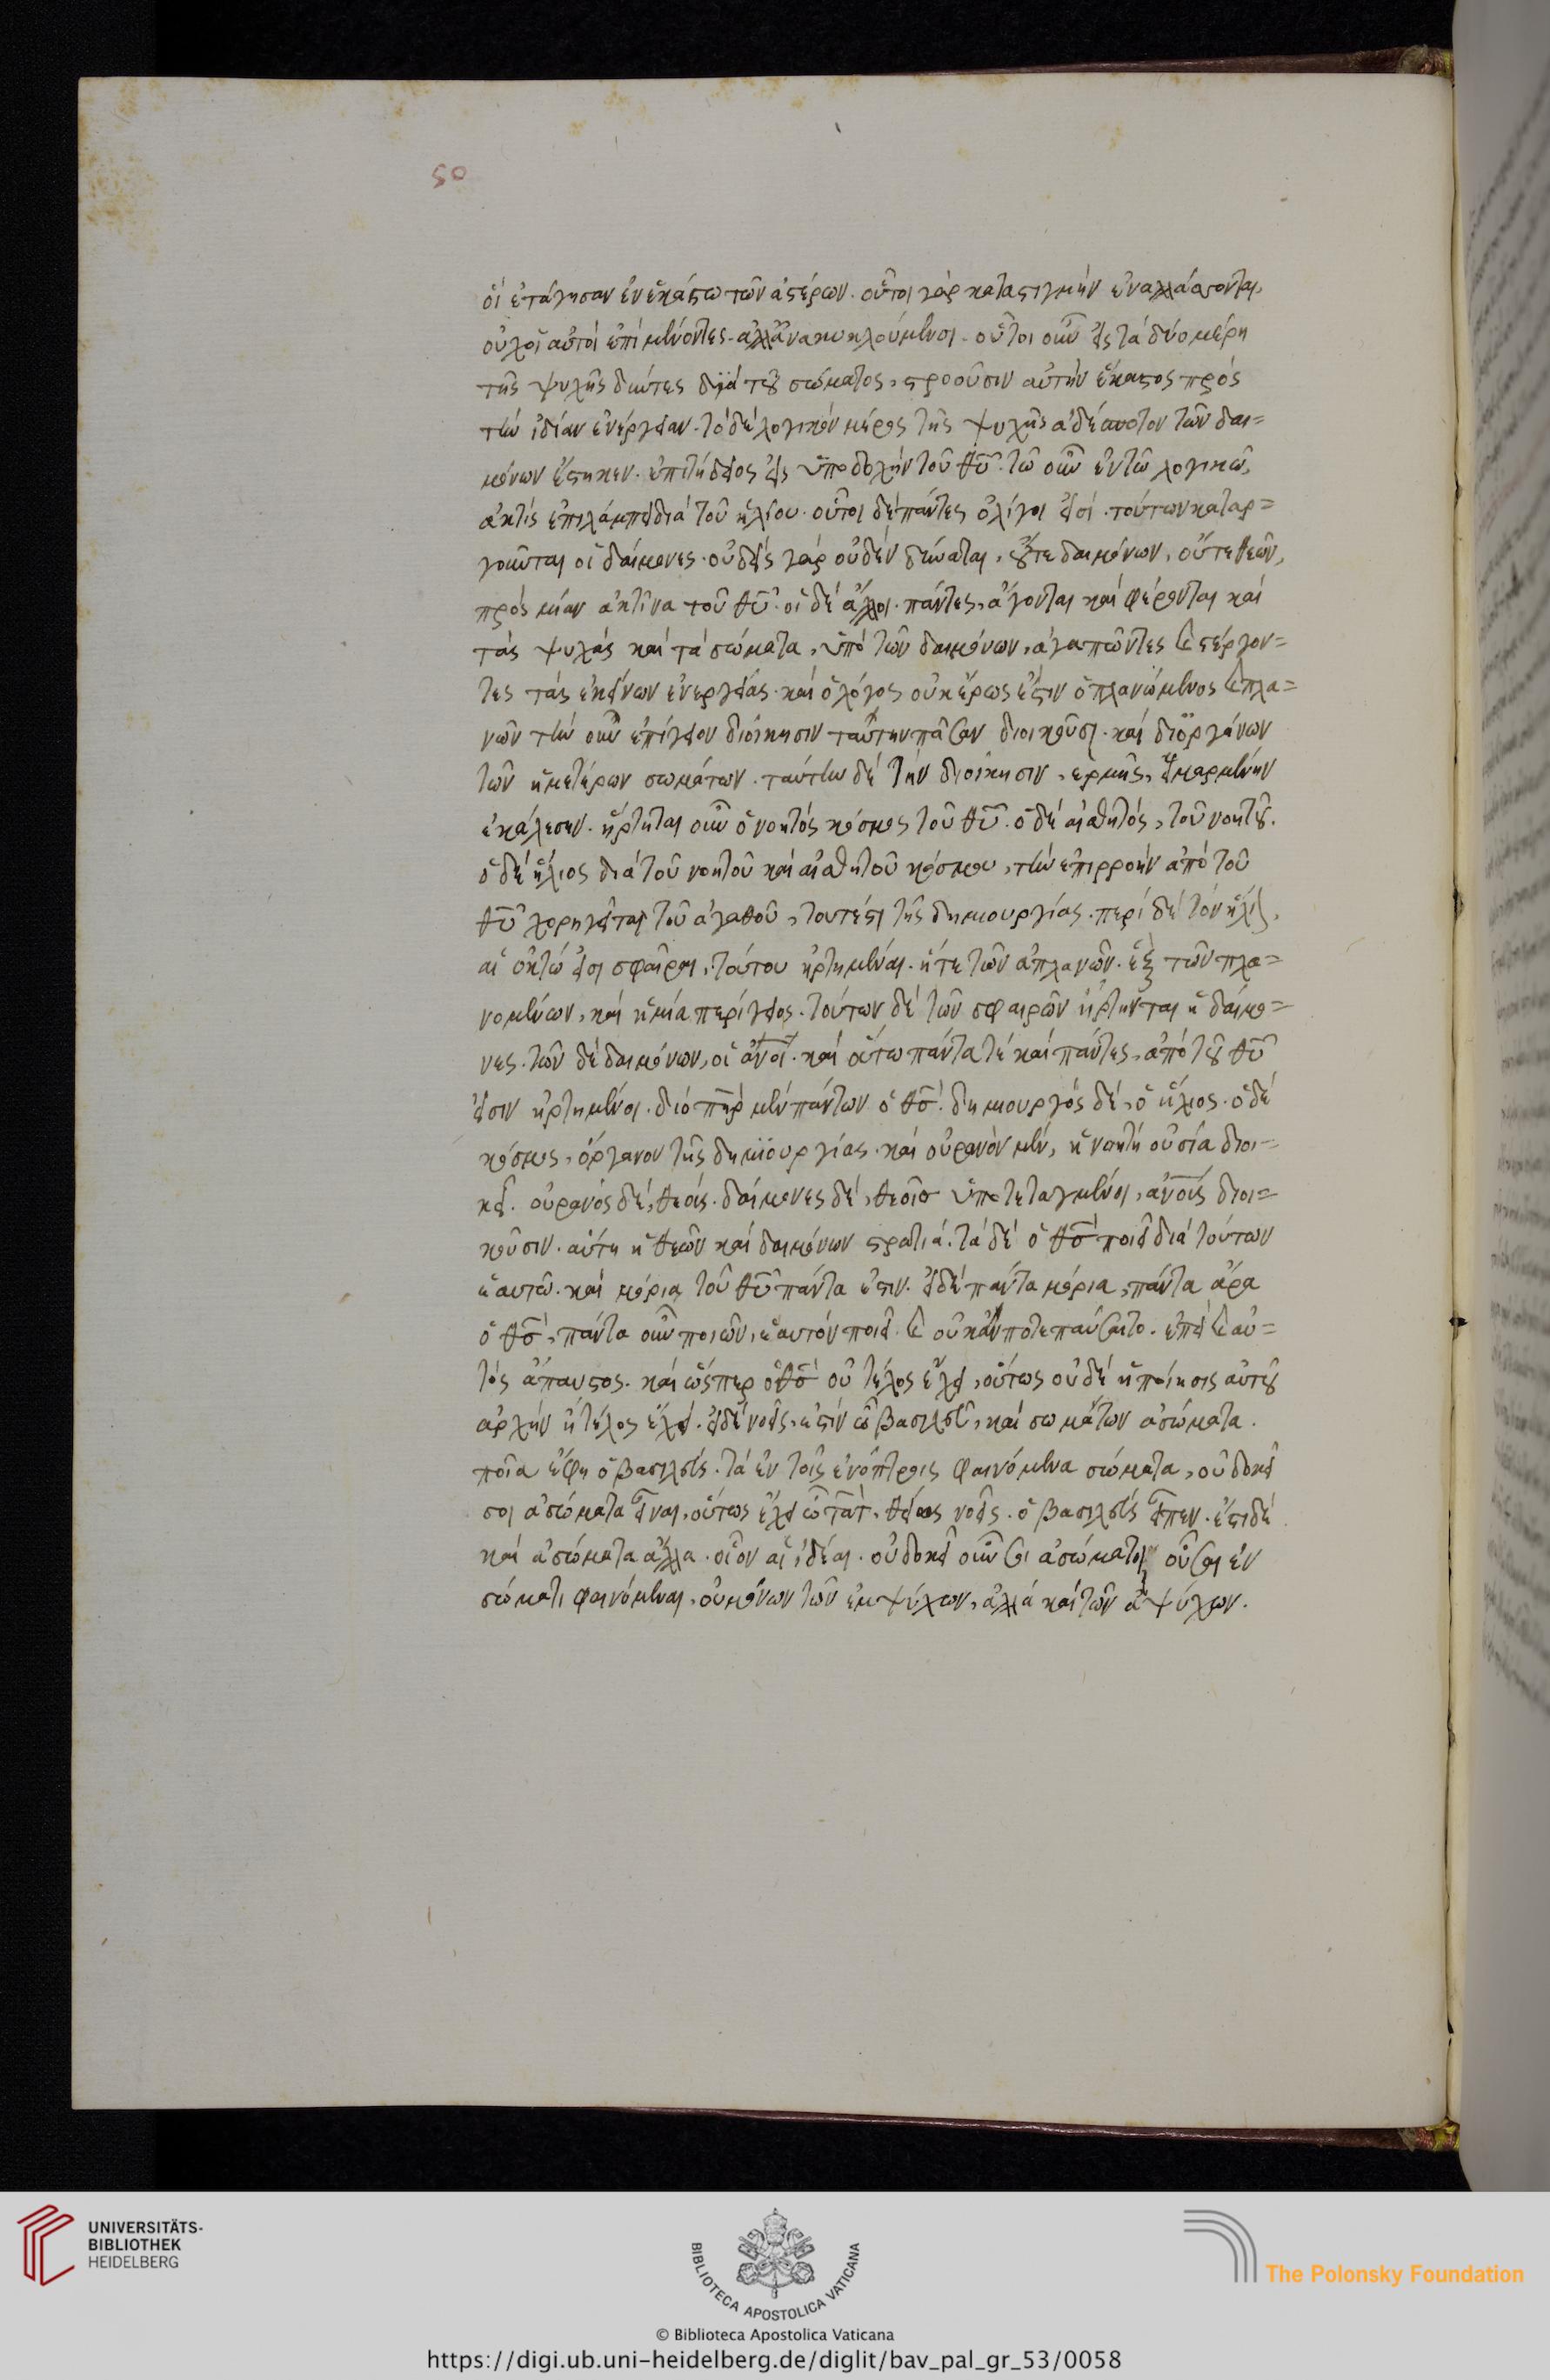 50
οἱ ἐτάγησαν ἐν ἑκάστω τῶν ἀστέρων. οὗτοι γὰρ κατὰ στιγμὴν ἐναλλάσσονται,
οὐχ οἱ αὐτοὶ ἐπιμένοντες. ἀλλ' ἀνακυκλούμενοι. οὗτοι οὖν εἰς τὰ δύο μέρη
τῆς ψυχῆς δύντες διὰ τοῦ σώματος, στροοῦσιν αὐτὴν ἕκαστος πρὸς
τὴν ἰδίαν ἐνέργειαν. τὸ δὲ λογικὸν μέρος τῆς ψυχῆς ἀδέσποτον τῶν δαι=
μόνων ἕστηκεν. ἐπιτήδειος εἰς ὑποδοχὴν τοῦ θῦ. τῶ οὖν ἐν τῶ λογικῶ,
ἀκτὶς ἐπιλάμπει διὰ τοῦ ἡλίου. οὗτοι δὲ πάντες ὀλίγοι εἰσὶ. τούτων καταρ=
γοῦνται οἱ δαίμονες. οὐδεὶς γὰρ οὐδὲν δύναται, οὔτε δαιμόνων, οὔτε θεῶν,
πρὸς μίαν ἀκτῖνα τοῦ θῦ. οἱ δὲ ἄλλοι πάντες, ἄγονται καὶ φέρονται καὶ
τὰς ψυχὰς καὶ τὰ σώματα, ὑπὸ τῶν δαιμόνων, ἀγαπῶντες καὶ στέργον=
τες τὰς ἐκείνων ἐνεργείας. καὶ ὁ λόγος οὐκ ἔρως ἐστὶν ὁ πλανώμενος καὶ πλα=
νῶν τὴν οὖν ἐπίγειον διοίκησιν ταύτην πᾶσαν διοικοῦσι. καὶ δι' ὀργάνων
τῶν ἡμετέρων σωμάτων. ταύτην δὲ τὴν διοίκησιν, ἑρμῆς, εἱμαρμένην
ἐκάλεσεν. ἤρτηται οὖν ὁ νοητὸς κόσμος τοῦ θῦ. ὁ δὲ αἰσθητός, τοῦ νοητοῦ.
ὁ δὲ ἥλιος διὰ τοῦ νοητοῦ καὶ αἰσθητοῦ κόσμου, τὴν ἐπιρροὴν ἀπὸ τοῦ
θῦ χορηγεῖται τοῦ ἀγαθοῦ, τουτέστι τῆς δημιουργίας. περὶ δὲ τὸν ἥλιον,
αἱ ὀκτώ εἰσι σφαῖραι, τούτου ἠρτημέναι. ἥ τε τῶν ἀπλανῶν. ἓξ τῶν πλα=
νομένων, καὶ ἡ μία περίγειος. τούτων δὲ τῶν σφαιρῶν ἤρτηνται οἱ δαίμο=
νες. τῶν δὲ δαιμόνων, οἱ ἄνοι. καὶ οὕτω πάντα τὲ καὶ πάντες, ἀπὸ τοῦ θῦ
εἰσιν ἠρτημένοι. διὸ πὴρ μὲν πάντων ὁ θσ. δημιουργὸς δὲ, ὁ ἥλιος. ὁ δὲ
κόσμος, ὄργανον τῆς δημϊουργίας. καὶ οὐρανὸν μὲν, ἡ νοητὴ οὐσία διοι=
κεῖ. οὐρανὸς δὲ, θεούς. δαίμονες δὲ, θεοῖσ ὑποτεταγμένοι, ἀνοὺς διοι=
κοῦσιν. αὕτη ἡ θεῶν καὶ δαιμόνων στρατιά. τὰ δὲ ὁ θσ ποιεῖ διὰ τούτων
ἑαυτῶ. καὶ μόρια τοῦ θῦ πάντα ἐστιν. εἰ δὲ πάντα μόρια, πάντα ἄρα
ὁ θσ, πάντα οὖν ποιῶν, ἑαυτὸν ποιεῖ. καὶ οὐκ ἄν ποτε παύσαιτο. ἐπεὶ καὶ αὐ=
τὸς ἄπαυστος. καὶ ὥσπερ ὁ θσ οὐ τέλος ἔχει, οὕτως οὐδὲ ἡ ποίησις αὐτοῦ
ἀρχὴν ἢ τέλος ἔχει. εἰ δὲ νοεῖς, ἐστὶν ὦ βασιλεῦ, καὶ σωμάτων ἀσώματα.
ποῖα ἔφη ὁ βασιλεύς. τὰ ἐν τοῖς ἐνόπτροις φαινόμενα σώματα, οὐ δοκεῖ
σοι ἀσώματα εἶναι, οὕτως ἔχει ὦ τὰτ, θείως νοεῖς. ὁ βασιλεὺς εἶπεν. ἔστι δὲ
καὶ ἀσώματα ἄλλα. οἷον αἱ ἰδέαι. οὐ δοκεῖ οὖν σοι ἀσώματοι οὖσαι ἐν
σώματι φαινόμεναι, οὐ μόνων τῶν ἐμψύχων, ἀλλὰ καὶ τῶν ἀψύχων.
UNIVERSITÄTS-
BIBLIOTHEK
HEIDELBERG
BIBLIOTECA APOSTOLICA VATICANA
The Polonsky Foundation
© Biblioteca Apostolica Vaticana
https://digi.ub.uni-heidelberg.de/diglit/bav_pal_gr_53/0058